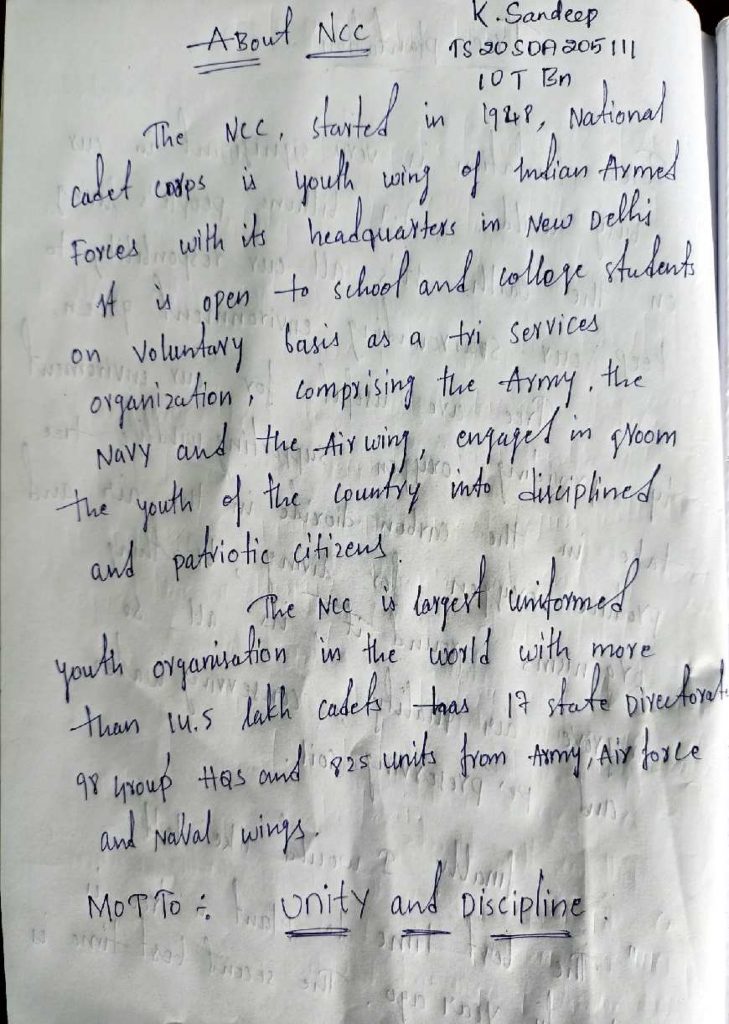 K. Sandeep
About NCC
TS20SDA205111
10T Bn
The NCC, started in 1948, National
cadet corps is youth wing of Indian Armed
Forces with its headquarters in New Delhi
It is open to school and college students
on voluntary basis as a tri services
organization, comprising the Army, the
Navy and the Air wing, engaged in groom
the youth of the country into disciplined
and patriotic citizens.
The NCC is largest uniformed
youth organisation in the world with more
than 14.5 lakh cadets has 17 state Directorat
98 Group HQS and 825 units from Army, Air force
and Naval wings.
MOTTO : Unity and Discipline.